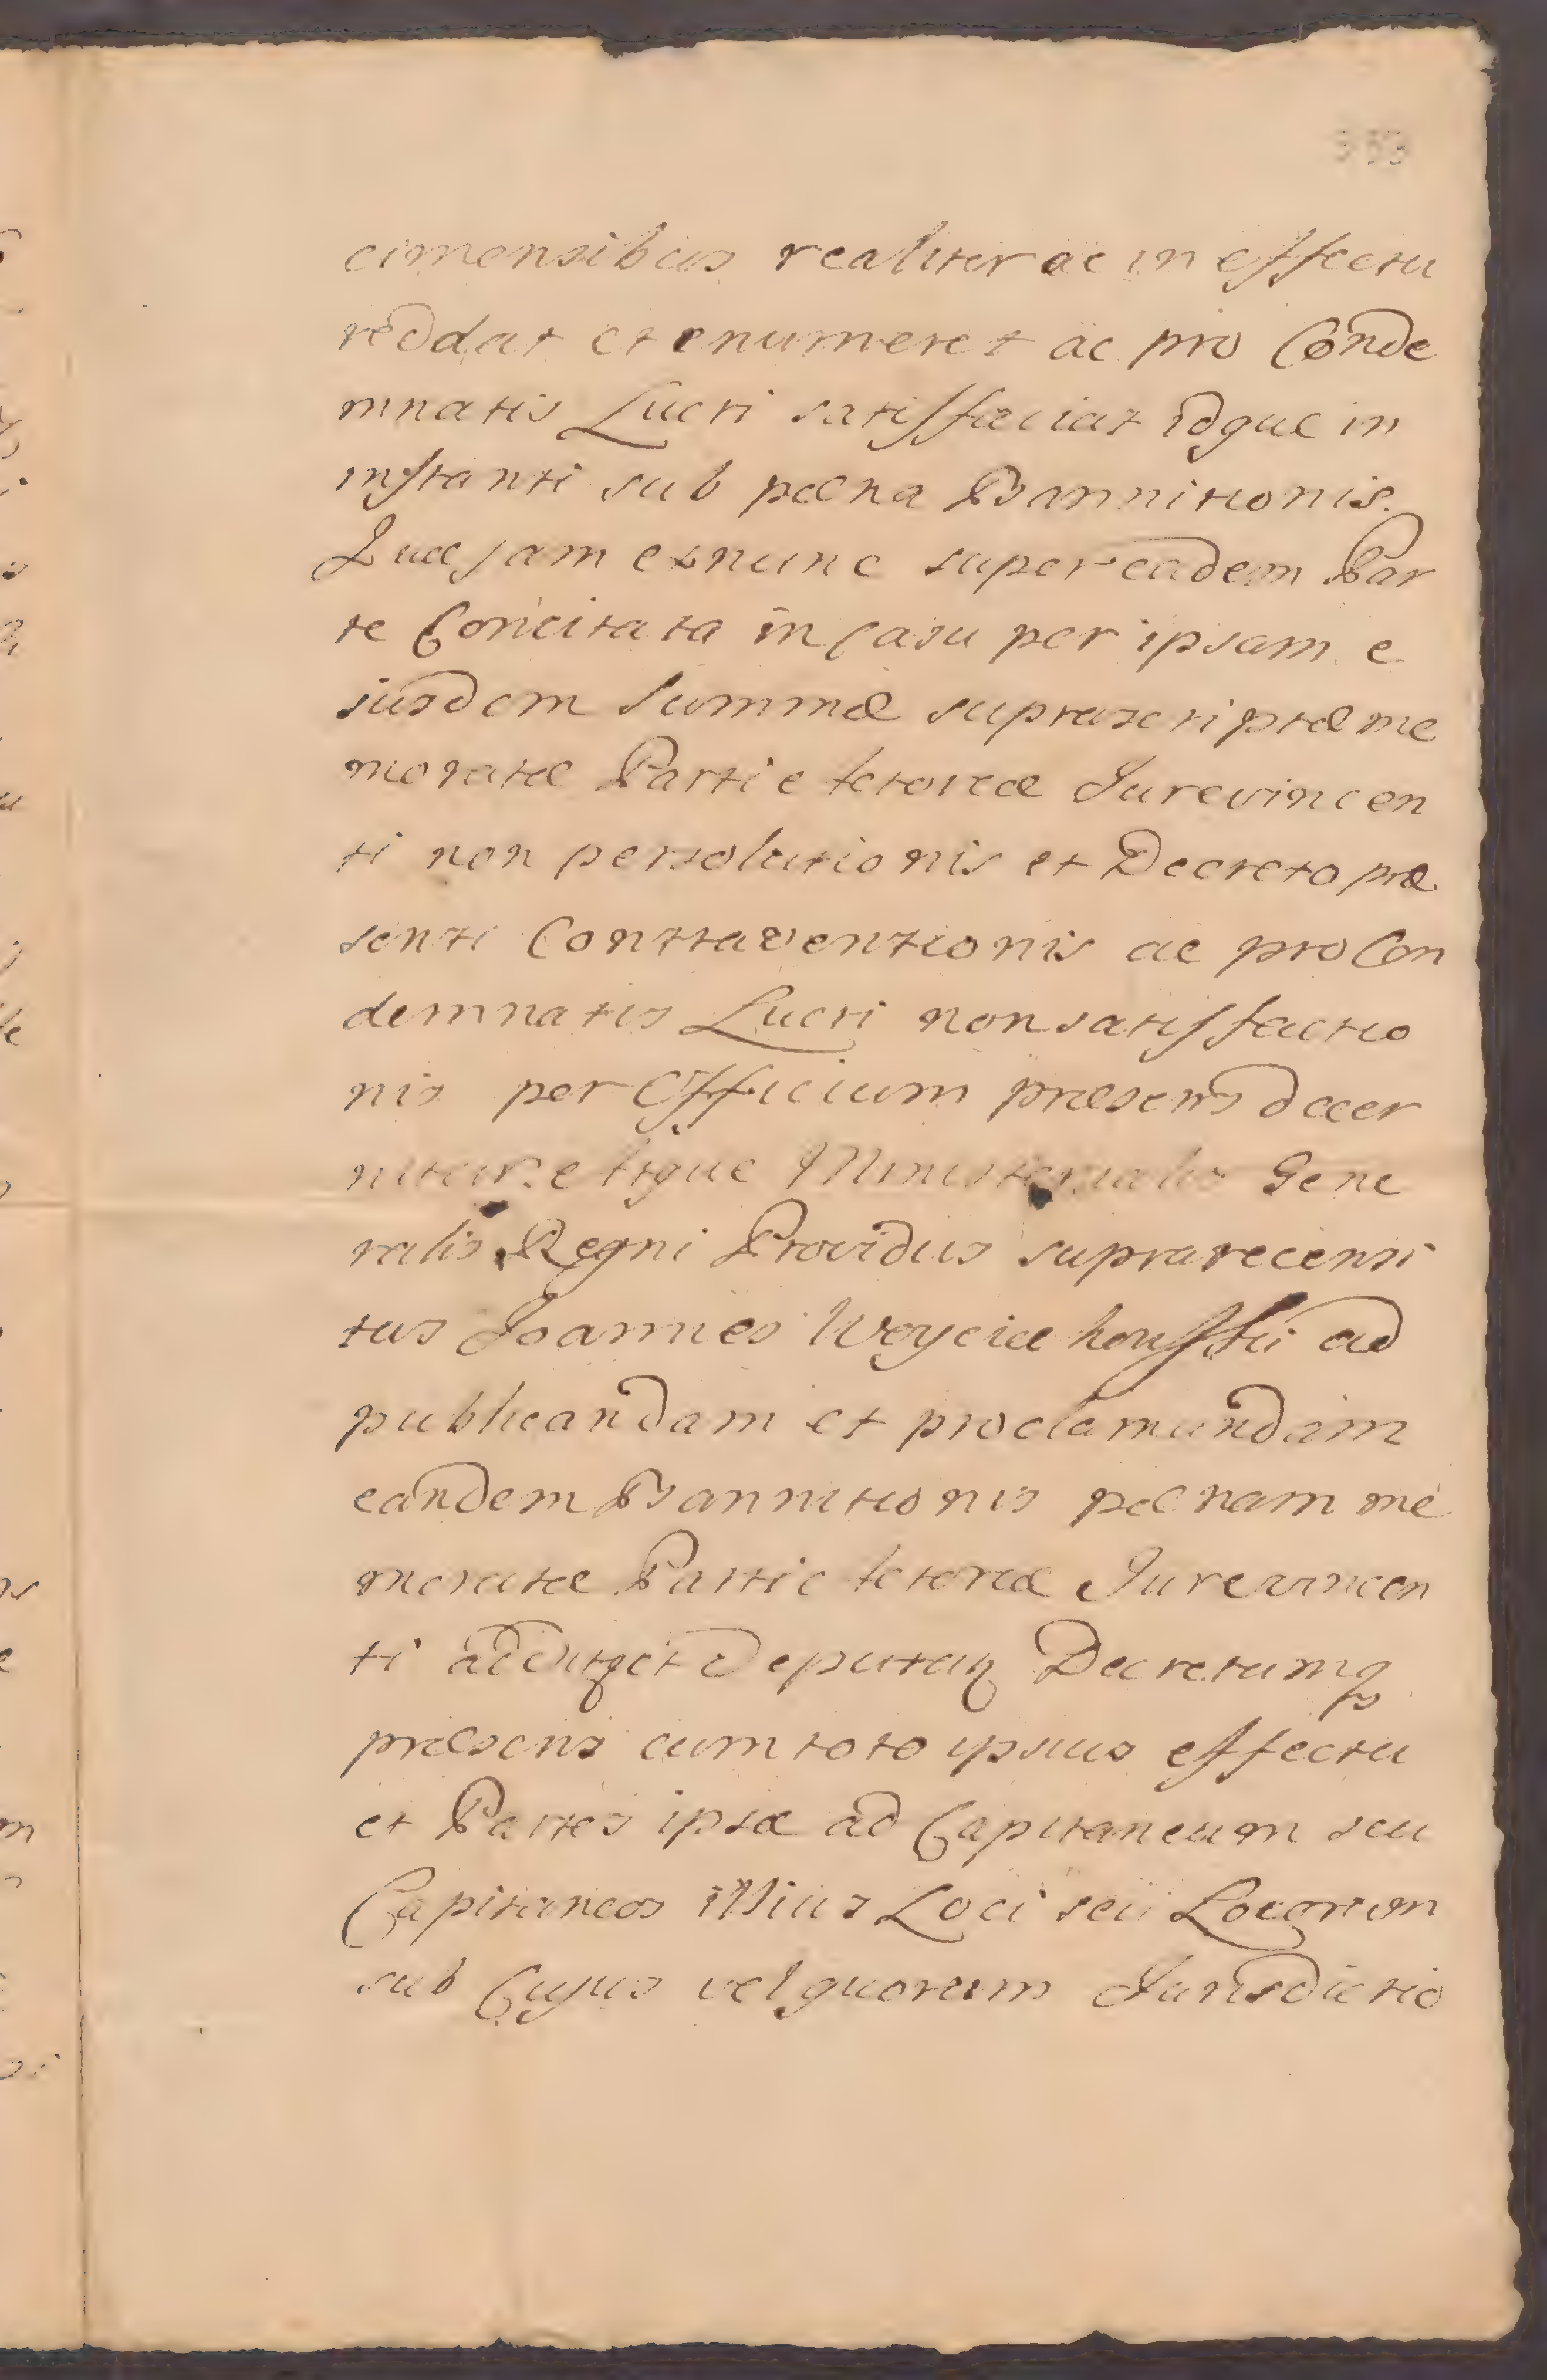 353
cimensibus realiter ac in effectu
reddat et enumeret ac pro Conde
mnatis Lucri satisfaciat idque in
instanti sub pœna Bannitionis.
Quæ jam exnunc super eadem Par
te Concitata in casu per ipsam e
iusdem summæ suprascriptæ me
moratæ Parti actoreæ Jurevincen
ti non persolutionis et Decreto præ
senti Contraventionis ac pro Con
demnatis Lucri non satisfactio
nis per Officium præsens decer
nitur eique Ministerialis Gene
ralis Regni Providus suprarecensi
tus Joannes Woyciechowski ad
publicandam et proclamandam
eandem Bannitionis pœnam me
moratæ Parti actoreæ Jurevincen
ti additq et Deputatq Decretumq
præsens cum toto ipsius effectu
et Partes ipsæ ad Capitaneum seu
Capitaneos illius Loci seu Locorum
sub Cujus vel quorum Jurisdictio